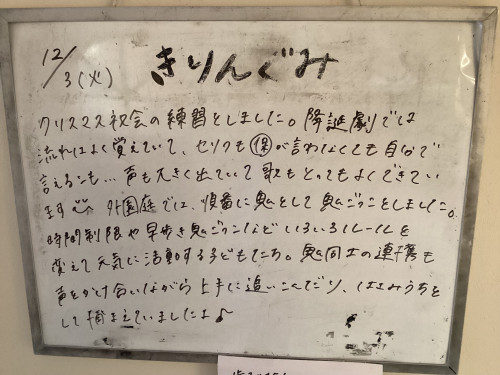 12/3(火)
きりんぐみ
クリスマス祝会の練習をしました。降誕劇では
流れはよく覚えていて、セリフも㋭が言わなくても自分で
言える子も… 声も大きく出ていて歌もとってもよくできてい
ます 外園庭では、順番に鬼として鬼ごっこをしました。
時間制限や早歩き鬼ごっこなどいろいろルールを
変えて元気に活動する子どもたち。鬼同士の連携も
声をかけ合いながら上手に追いこんだり、はさみうちを
して捕まえていましたよ♪